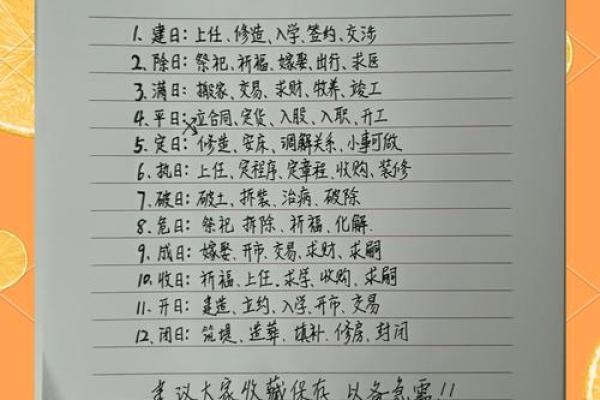 1. 建日：上任、修造、入学、签约、交涉
2. 除日：祭祀、祈福、嫁娶、出行、求医
3. 满日：搬家、交易、求财、牧养、竣工
4. 平日：立合同、定货、入股、入职、开工
5. 定日：修造、安床、调解关系、小事可做
6. 执日：上任、定程序、定章程、收购、装修
7. 破日：破土、拆装、治病、破除
8. 危日：祭祀 拆除、祈福、化解.
9. 成日：嫁娶、开市、交易、求财、求嗣
10. 收日：祈福、上任、求学、收购、求嗣
11. 开日：建造、立约、入学、开市、交易
12. 闭日：筑堤、造葬、填补、修房、封闭
建议大家收藏保存 以备急需!!